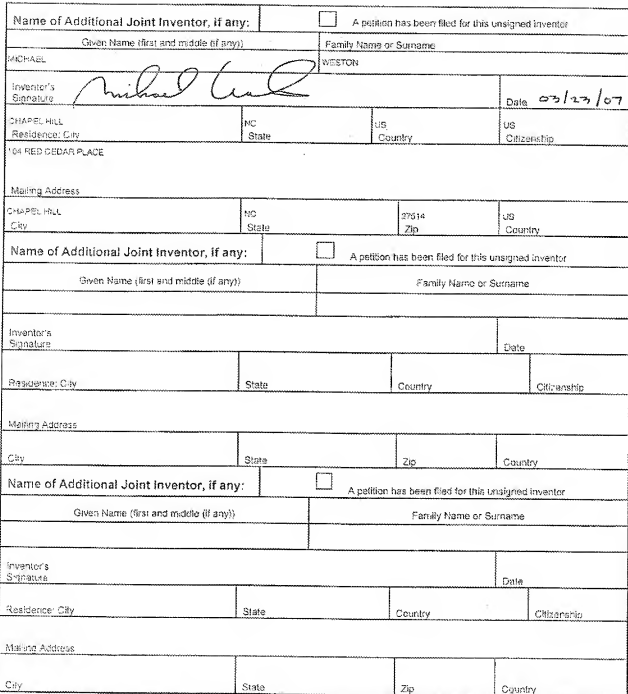 Name of Additional Joint Inventor, if any: A petition has been filed for this unsigned inventor
Given Name (first and middle (if any)) Family Name or Surname
MICHAEL WESTON
Inventor's
Signature Date 03/23/07
CHAPEL HILL NC US US
Residence: City State Country Citizenship
104 RED CEDAR PLACE
Mailing Address
CHAPEL HILL NC 27514 US
City State Zip Country
Name of Additional Joint Inventor, if any: A petition has been filed for this unsigned inventor
Given Name (first and middle (if any)) Family Name or Surname
Inventor's
Signature Date
Residence: City State Country Citizenship
Mailing Address
City State Zip Country
Name of Additional Joint Inventor, if any: A petition has been filed for this unsigned inventor
Given Name (first and middle (if any)) Family Name or Surname
Inventor's
Signature Date
Residence: City State Country Citizenship
Mailing Address
City State Zip Country